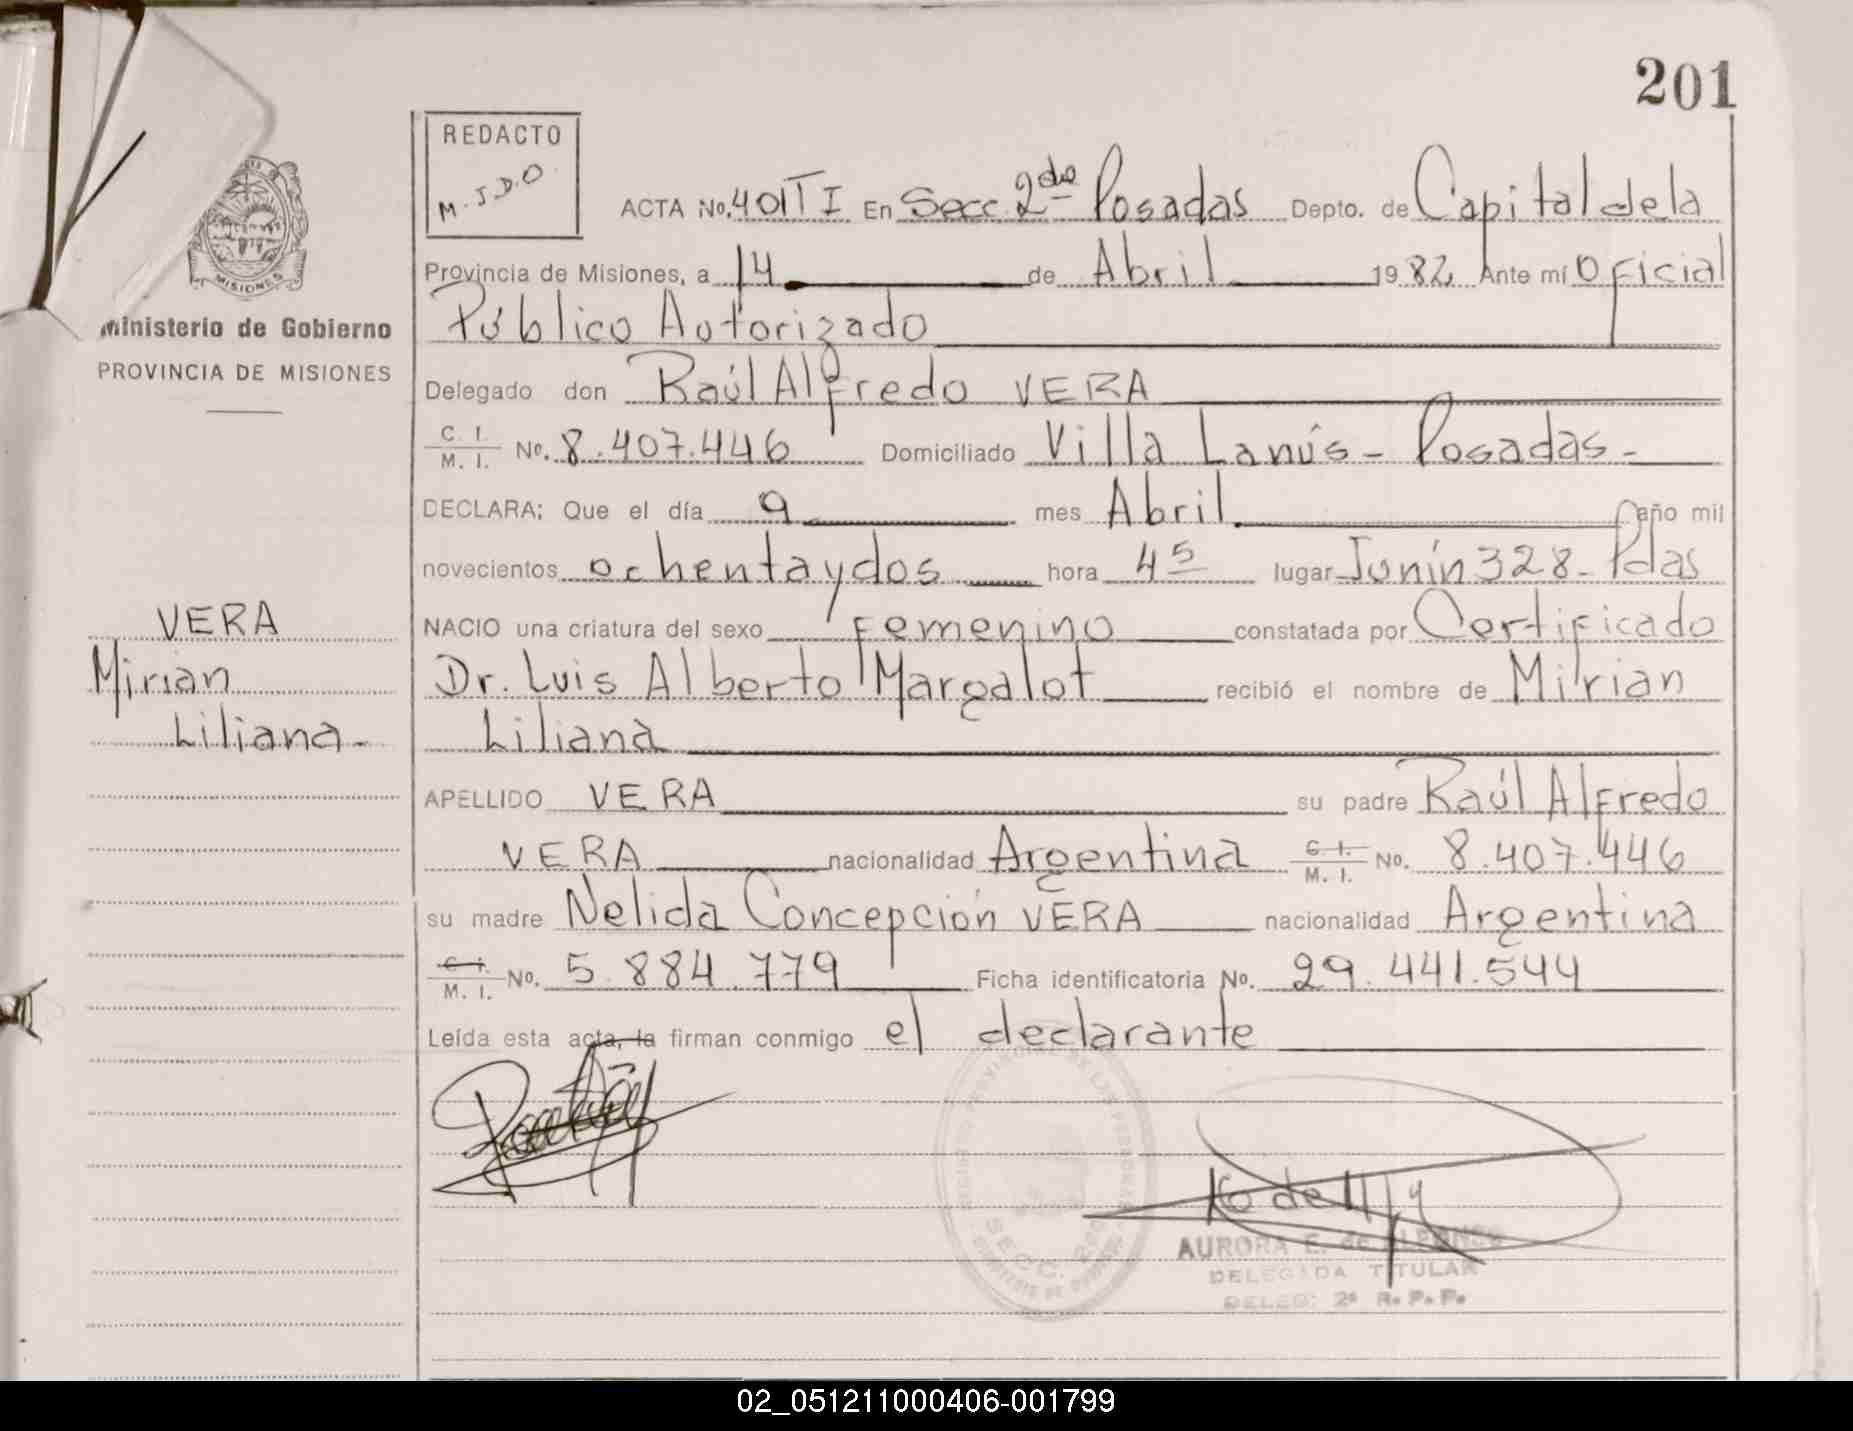 201
REDACTO
M.J.D.O.
ACTA No. 401 T I En Secc. 2da Posadas Depto. de Capital de la
Provincia de Misiones, a 14 de Abril 1982 Ante mí Oficial
Público Autorizado
Delegado don Raúl Alfredo VERA
C. I.
M. I. No. 8.407.446 Domiciliado Villa Lanús - Posadas -
DECLARA: Que el día 9 mes Abril año mil
novecientos ochenta y dos hora 4 5 lugar Junín 328 - Pdas
NACIO una criatura del sexo Femenino constatada por Certificado
Dr. Luis Alberto Margalot recibió el nombre de Mirian
Liliana
APELLIDO VERA su padre Raúl Alfredo
VERA nacionalidad Argentina C. I. M. I. No. 8.407.446
su madre Nelida Concepción VERA nacionalidad Argentina
C. I. M. I. No. 5.884.779 Ficha identificatoria No. 29.441.544
Leída esta acta, la firman conmigo el declarante
MISIONES
Ministerio de Gobierno
PROVINCIA DE MISIONES
VERA
Mirian
Liliana -
SECC. 2da
AURORA E. de ALFONSO
DELEGADA TITULAR
DELEG. 2ª R. P. P.
02_051211000406-001799